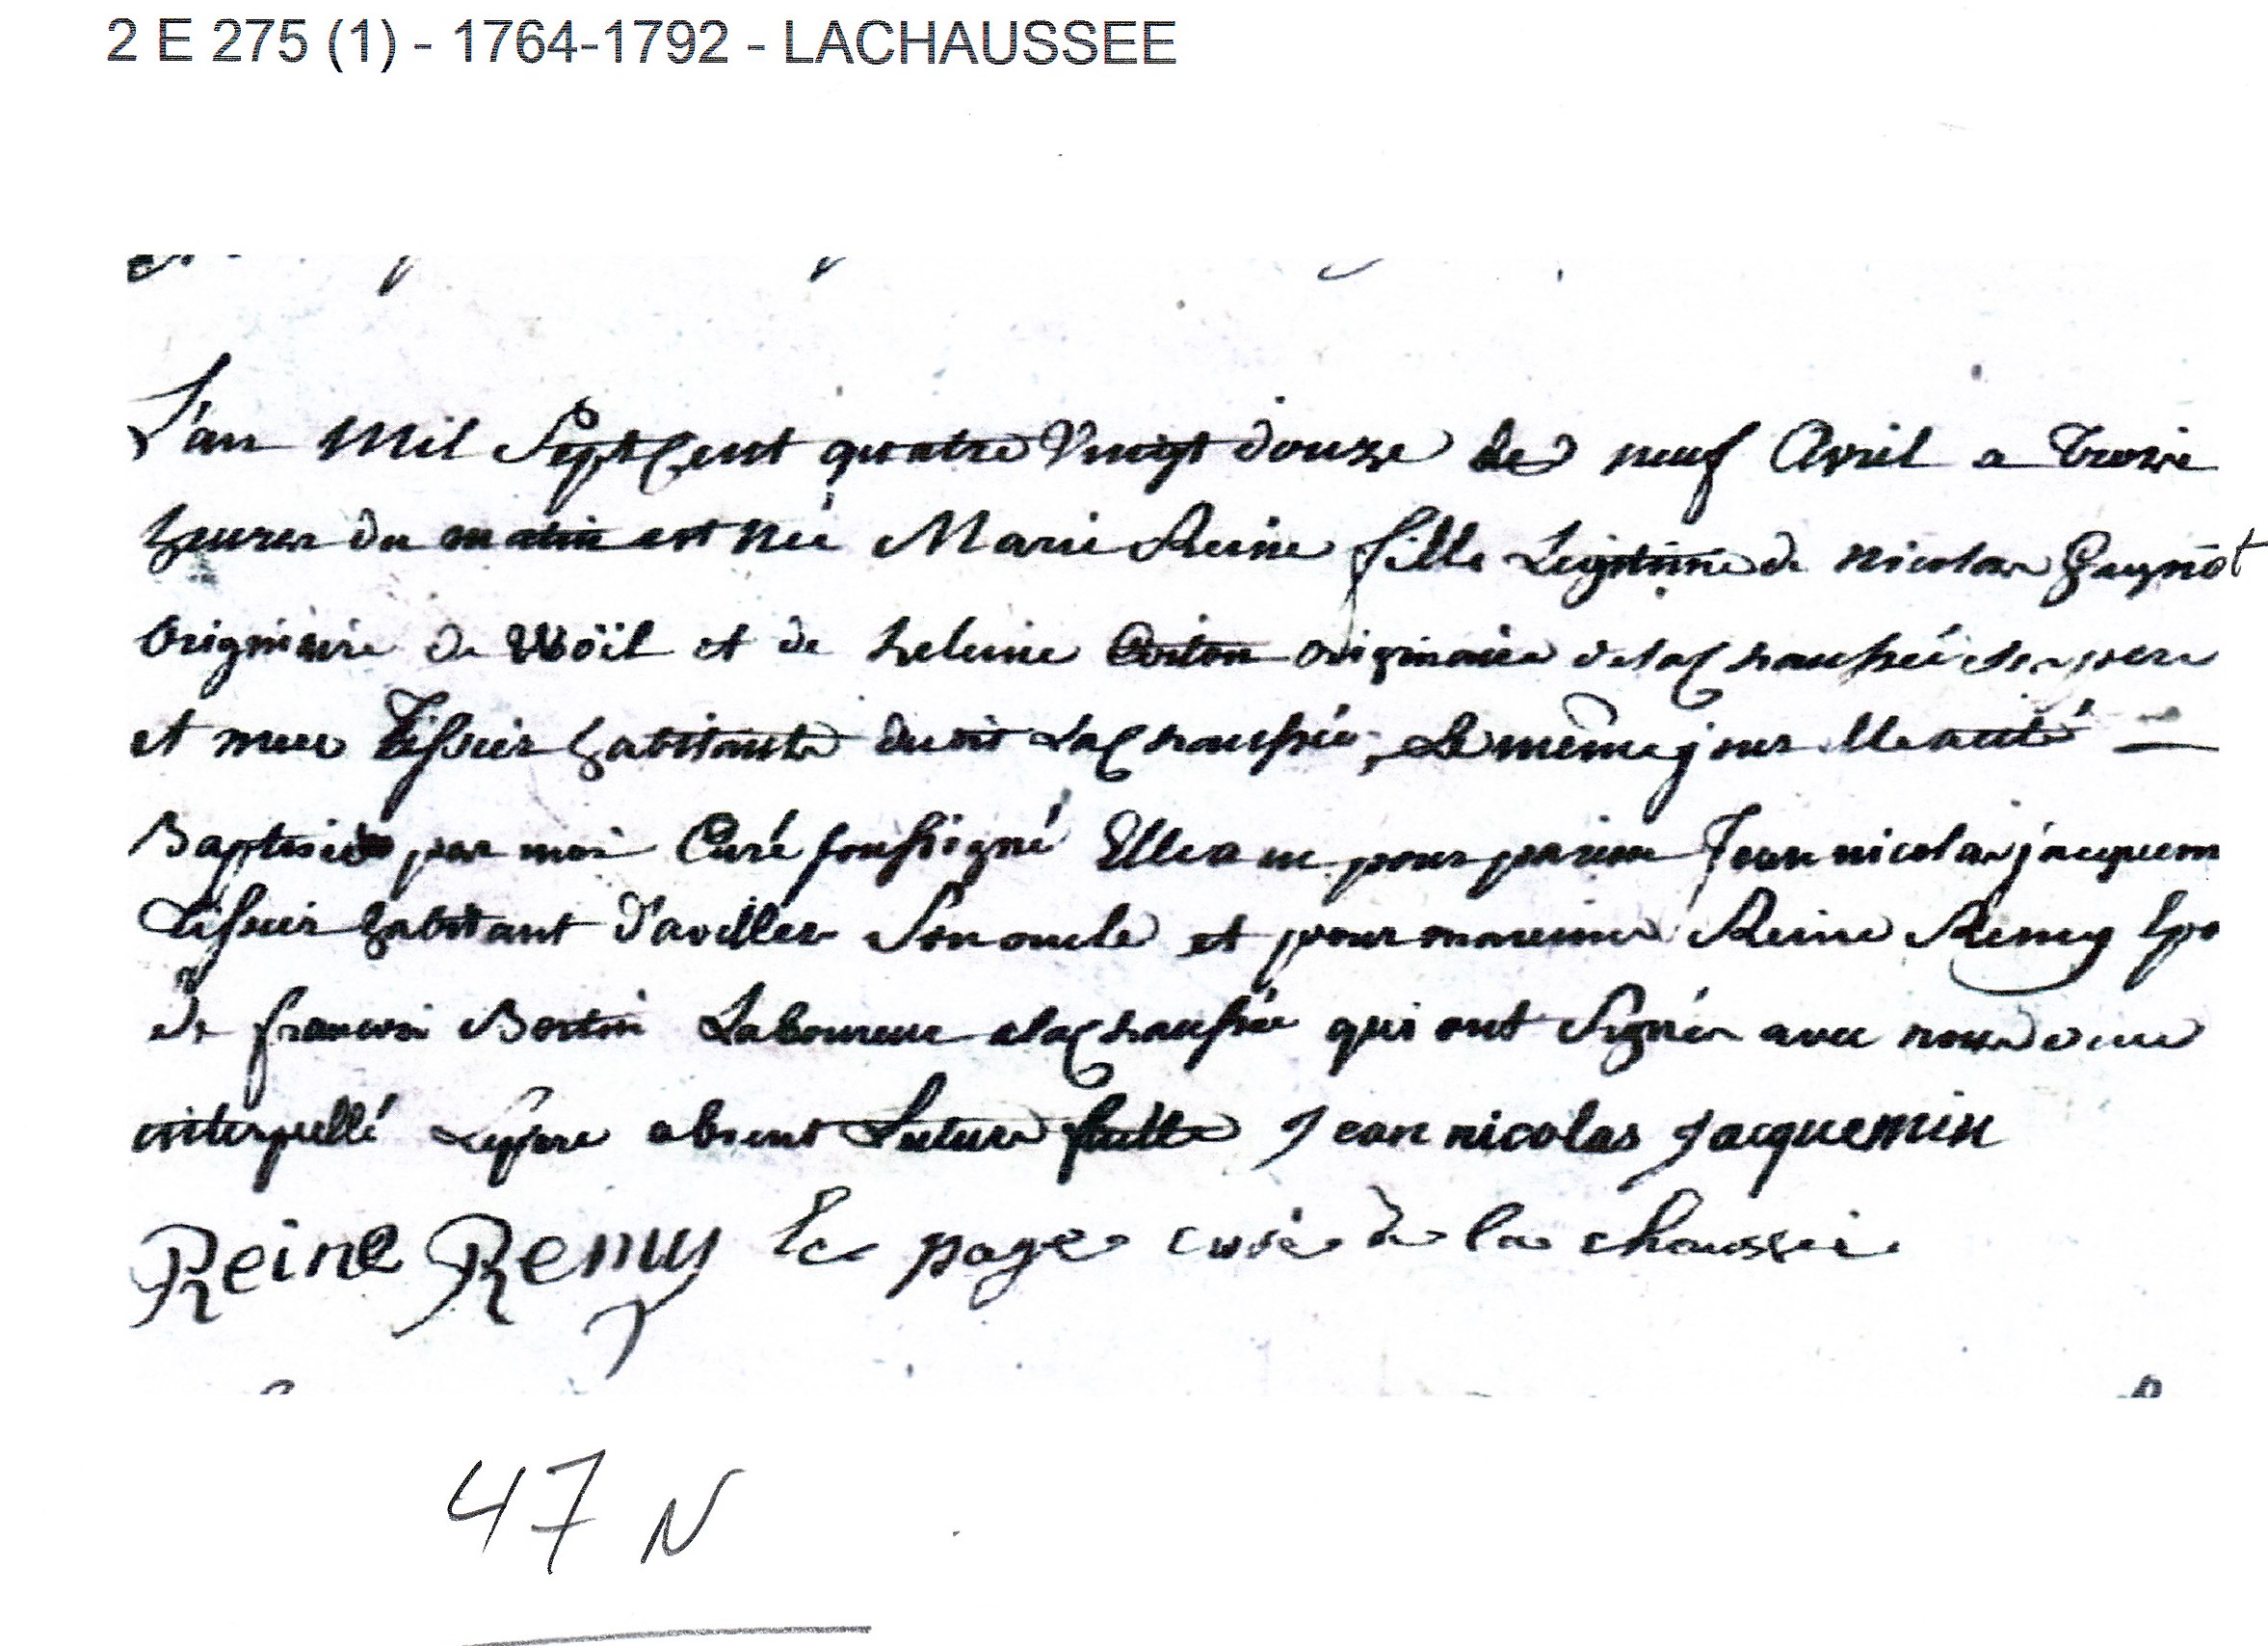 2 E 275 (1) - 1764-1792 - LACHAUSSEE
L'an mil Sept Cent quatre Vingt douze le neuf Avril a trois
heures du matin est née Marie Reine fille Legitime de nicolas
Originaire de Wöil et de heleine originaire de lachaussée ses pere
et mere tissier habitants dudit Lachaussée, Le même jour elle a été —
Baptisée par moi Curé soussigné Elle a eu pour parein Jean nicolas jacquem
tissier habitant d'aviller Son oncle et pour mareine Reine Remy Epo
de francois Bertin Laboureur a lachaussée qui ont Signés avec nous
interpellé Le pere absent Lecture faitte Jean nicolas Jacquemin
Reine Remy Le page curé de la chaussée
47 N